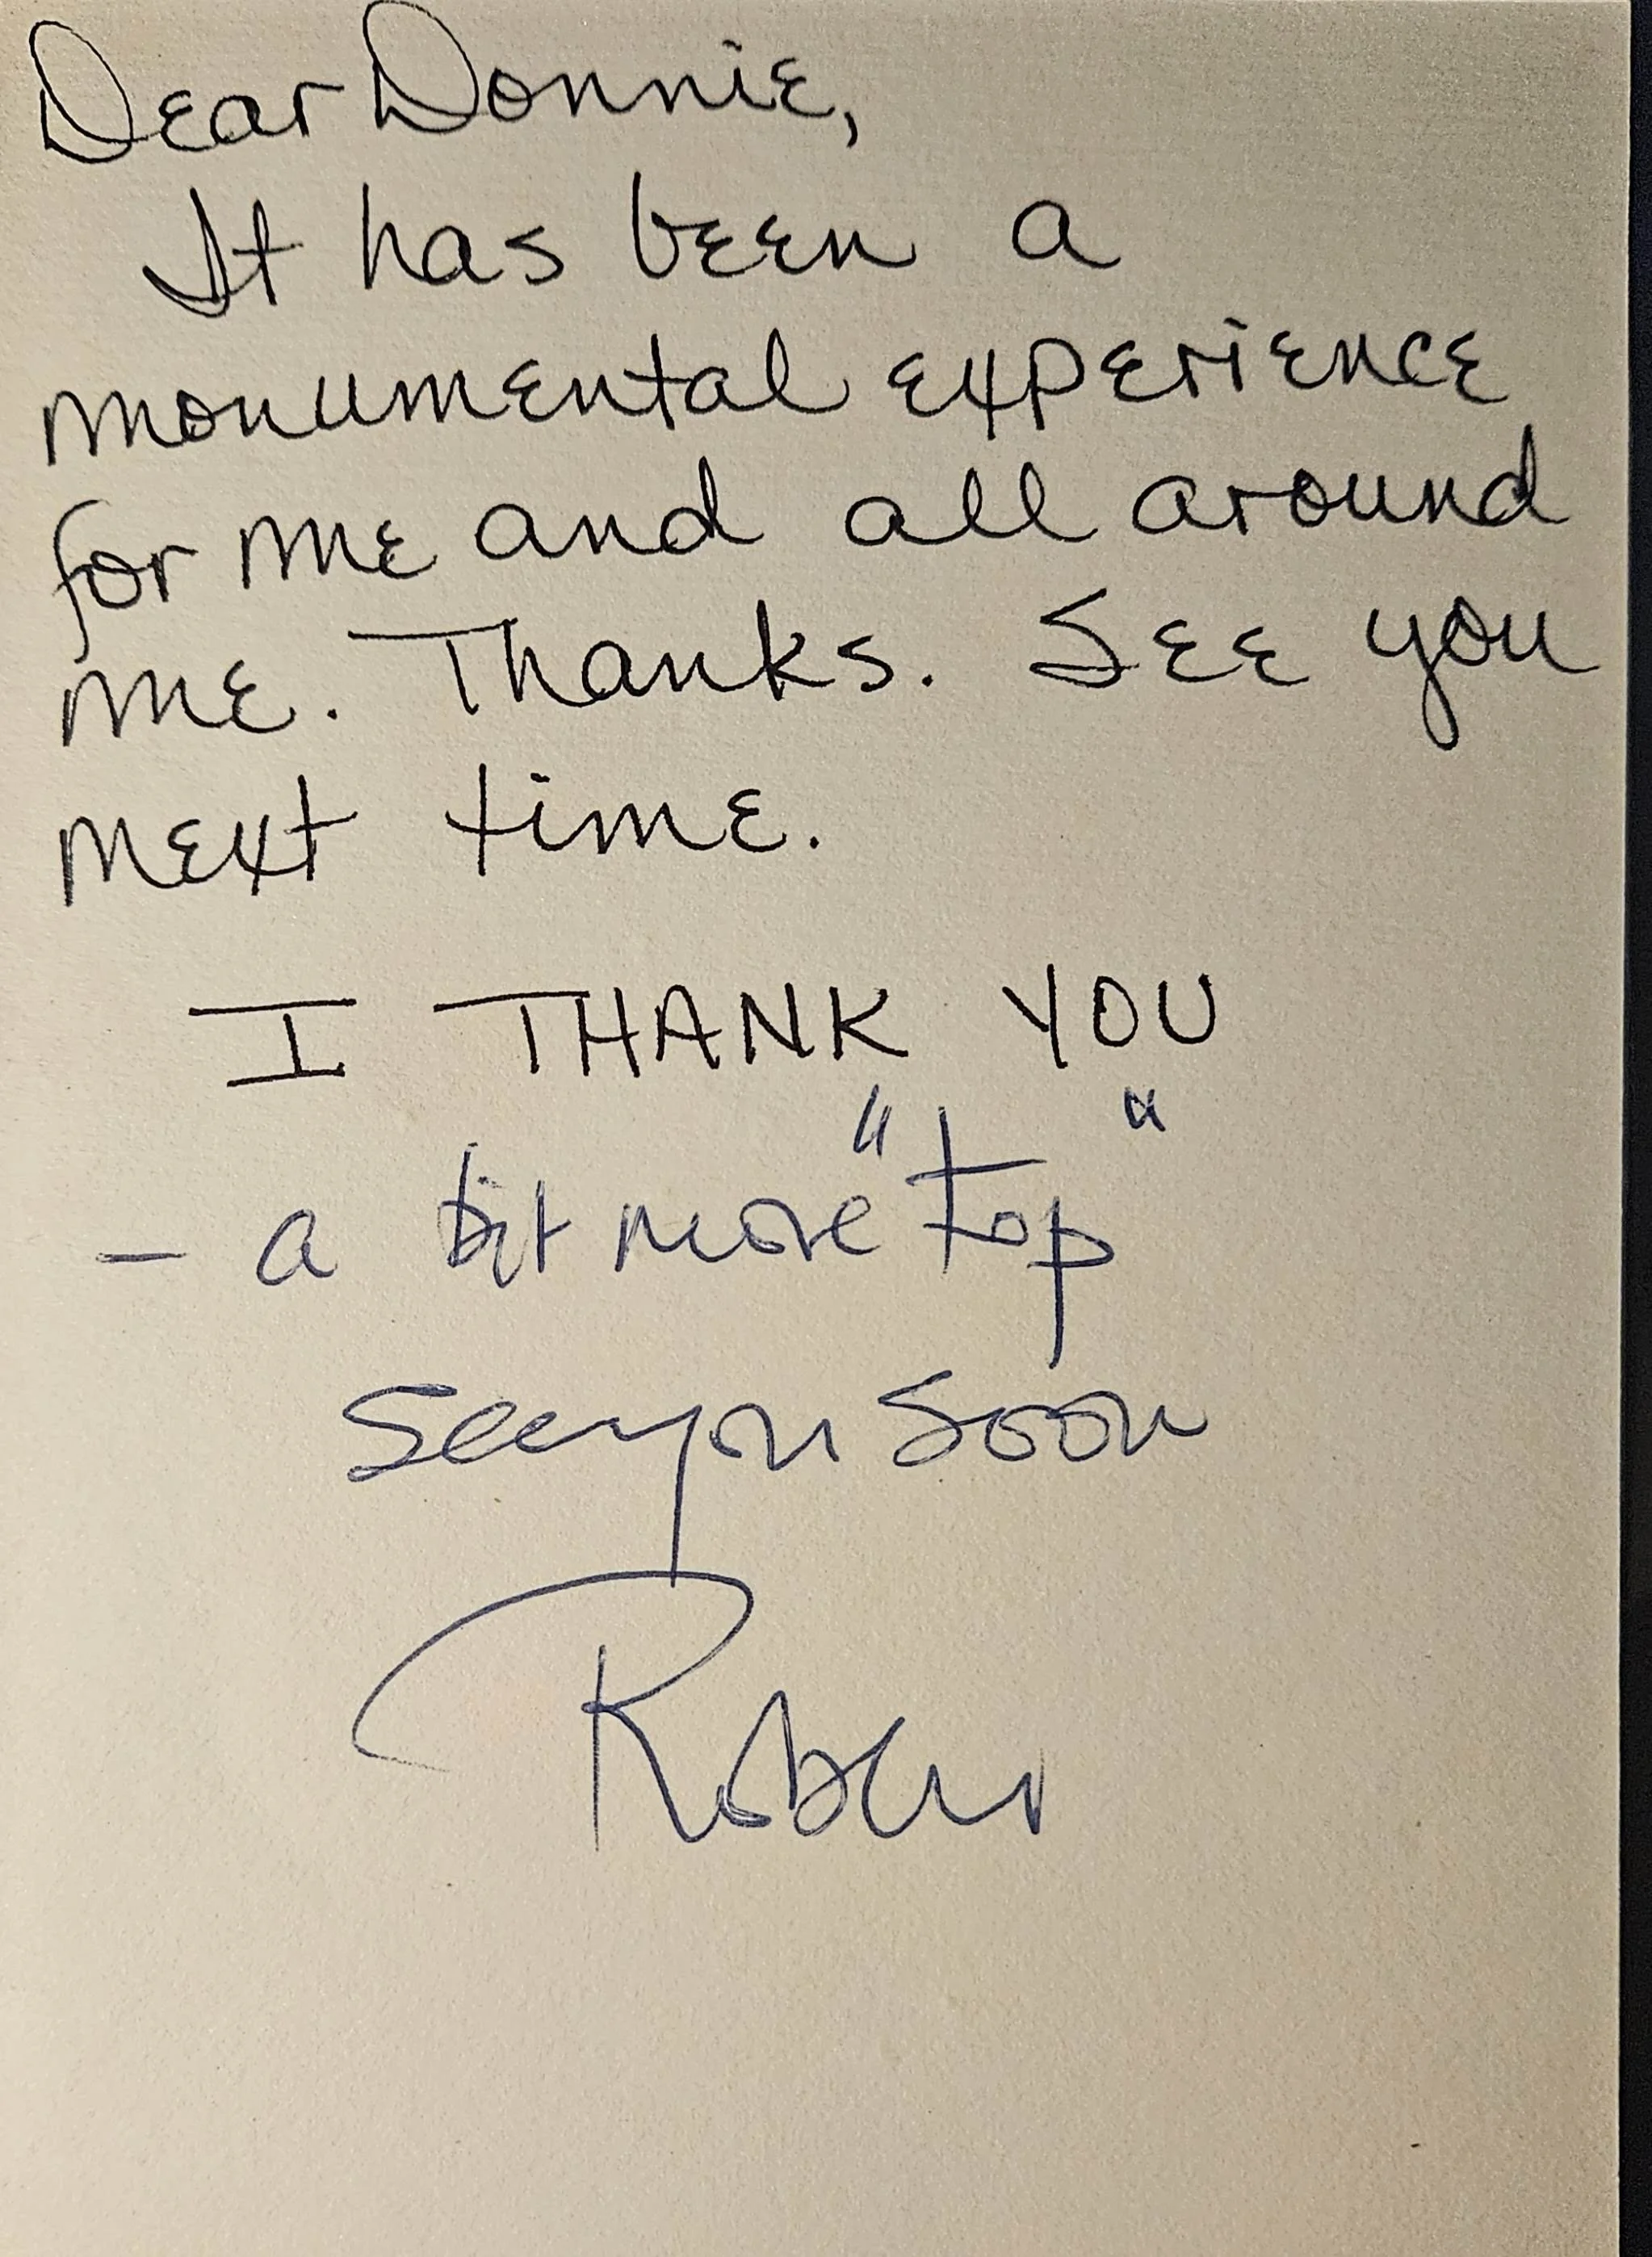 Dear Donnie,
It has been a
monumental experience
for me and all around
me. Thanks. See you
next time.
I THANK YOU
– a bit more "top"
see you soon
Robert